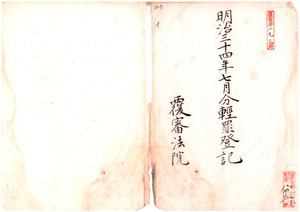 明治三十四年七月分輕罪登記
覆審法院